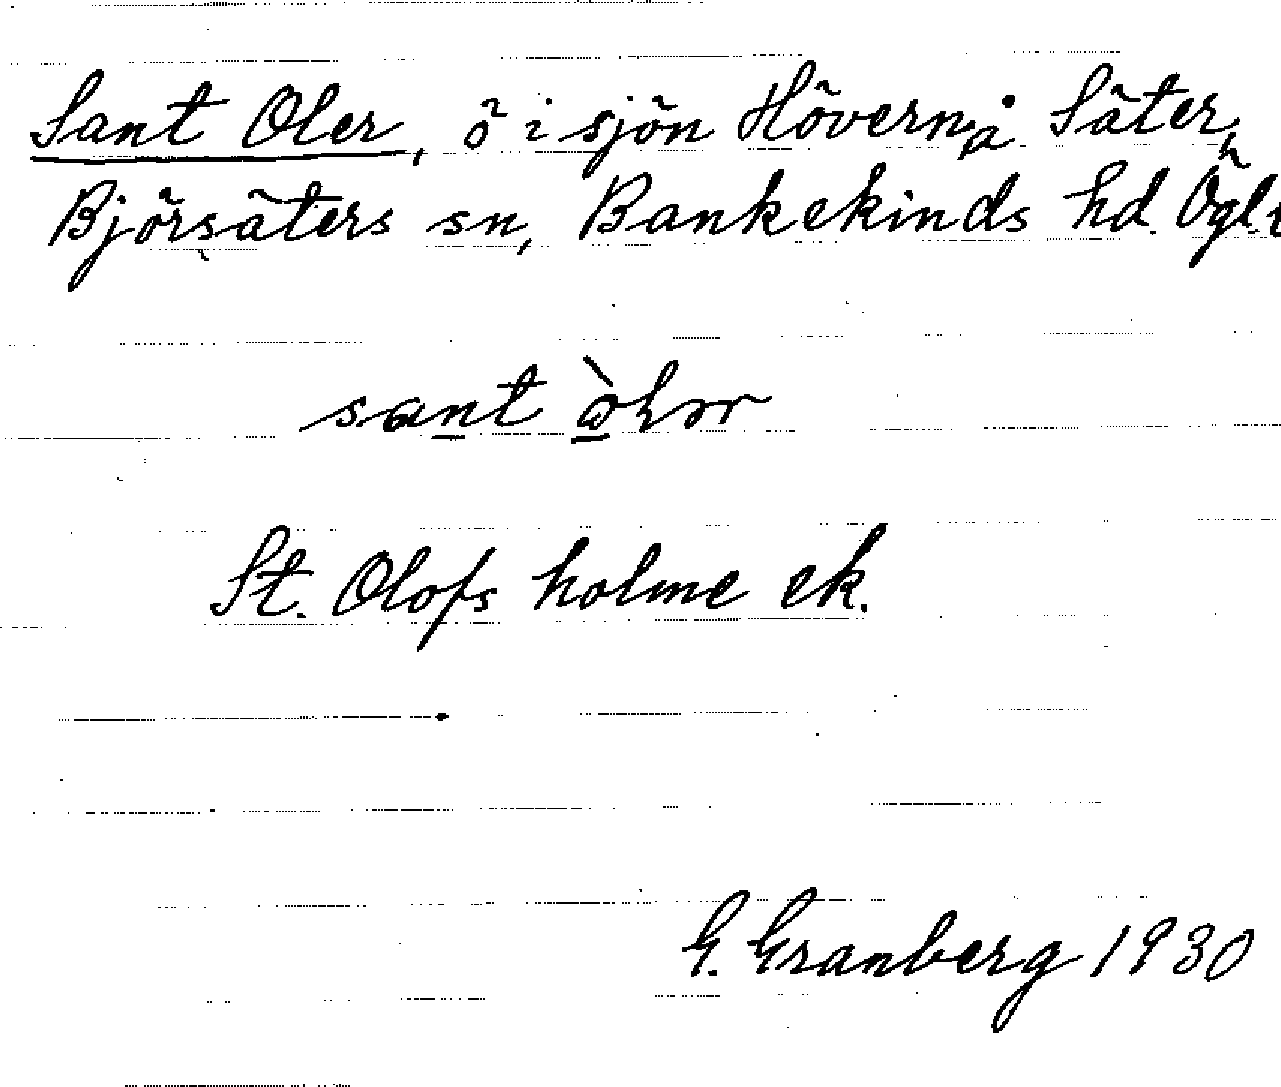 Sant Oler, ö i sjön Hövern, å Säter,
Björsäters sn, Bankekinds hd. Ögl.
sant
St. Olofs holme ek.
G. Granberg 1930